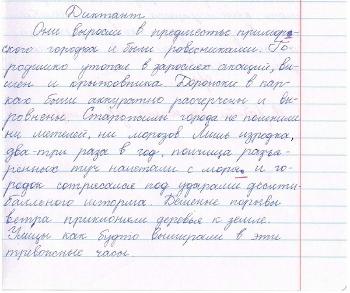 Диктант
Они выросли в предместье приморс-
ского городка и были ровесниками. Го-
родишко утопал в зарослях акаций, ви-
шен и крыжовника. Дорожки в пар-
ках были аккуратно расчерчены и вы-
ровнены. Старожилы города не помнили
ни метелей, ни морозов. Лишь изредка,
два-три раза в год, полчища разъя-
ренных туч налетали с моря, и го-
родок сотрясался под ударами десяти-
балльного шторма. Бешеные порывы
ветра приклоняли деревья к земле.
Улицы как будто вымирали в эти
тревожные часы.